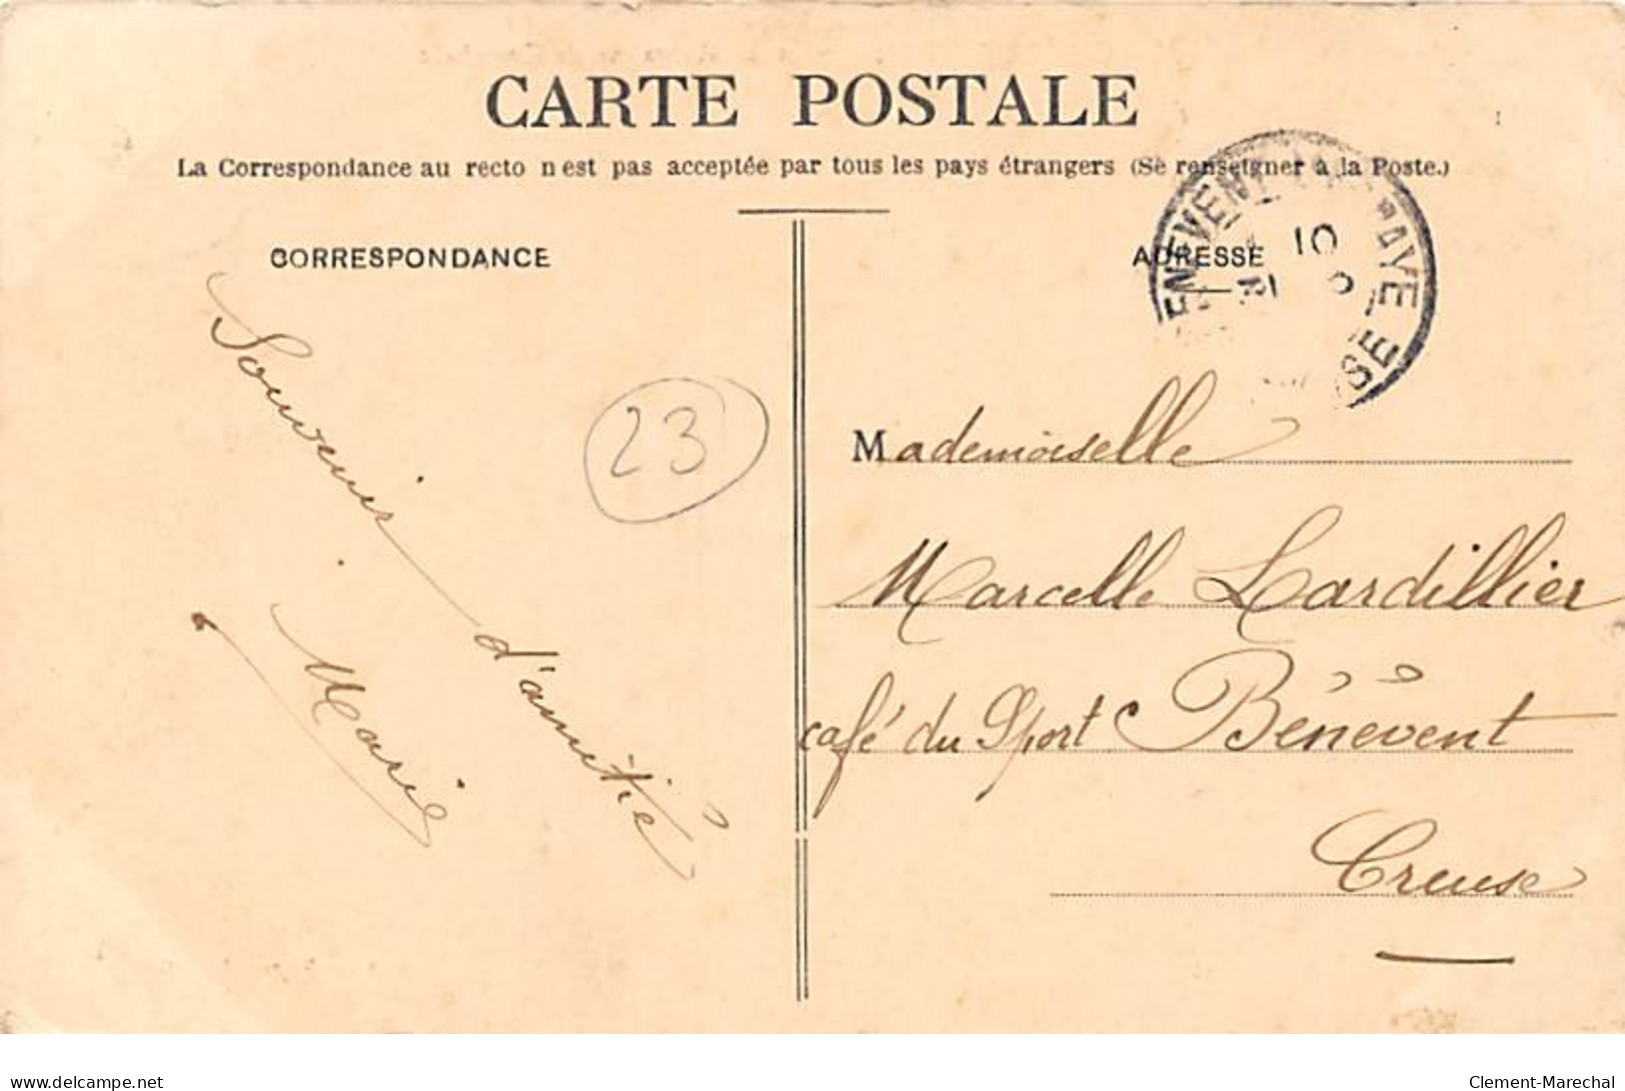 CARTE POSTALE
La Correspondance au recto n'est pas acceptée par tous les pays étrangers (Se renseigner à la Poste.)
CORRESPONDANCE
ADRESSE
10
Souvenir d'amitié
Marie
23
Mademoiselle
Marcelle Lardillier
café du Sport Bénévent
Creuse
www.delcampe.net
Clement-Marechal